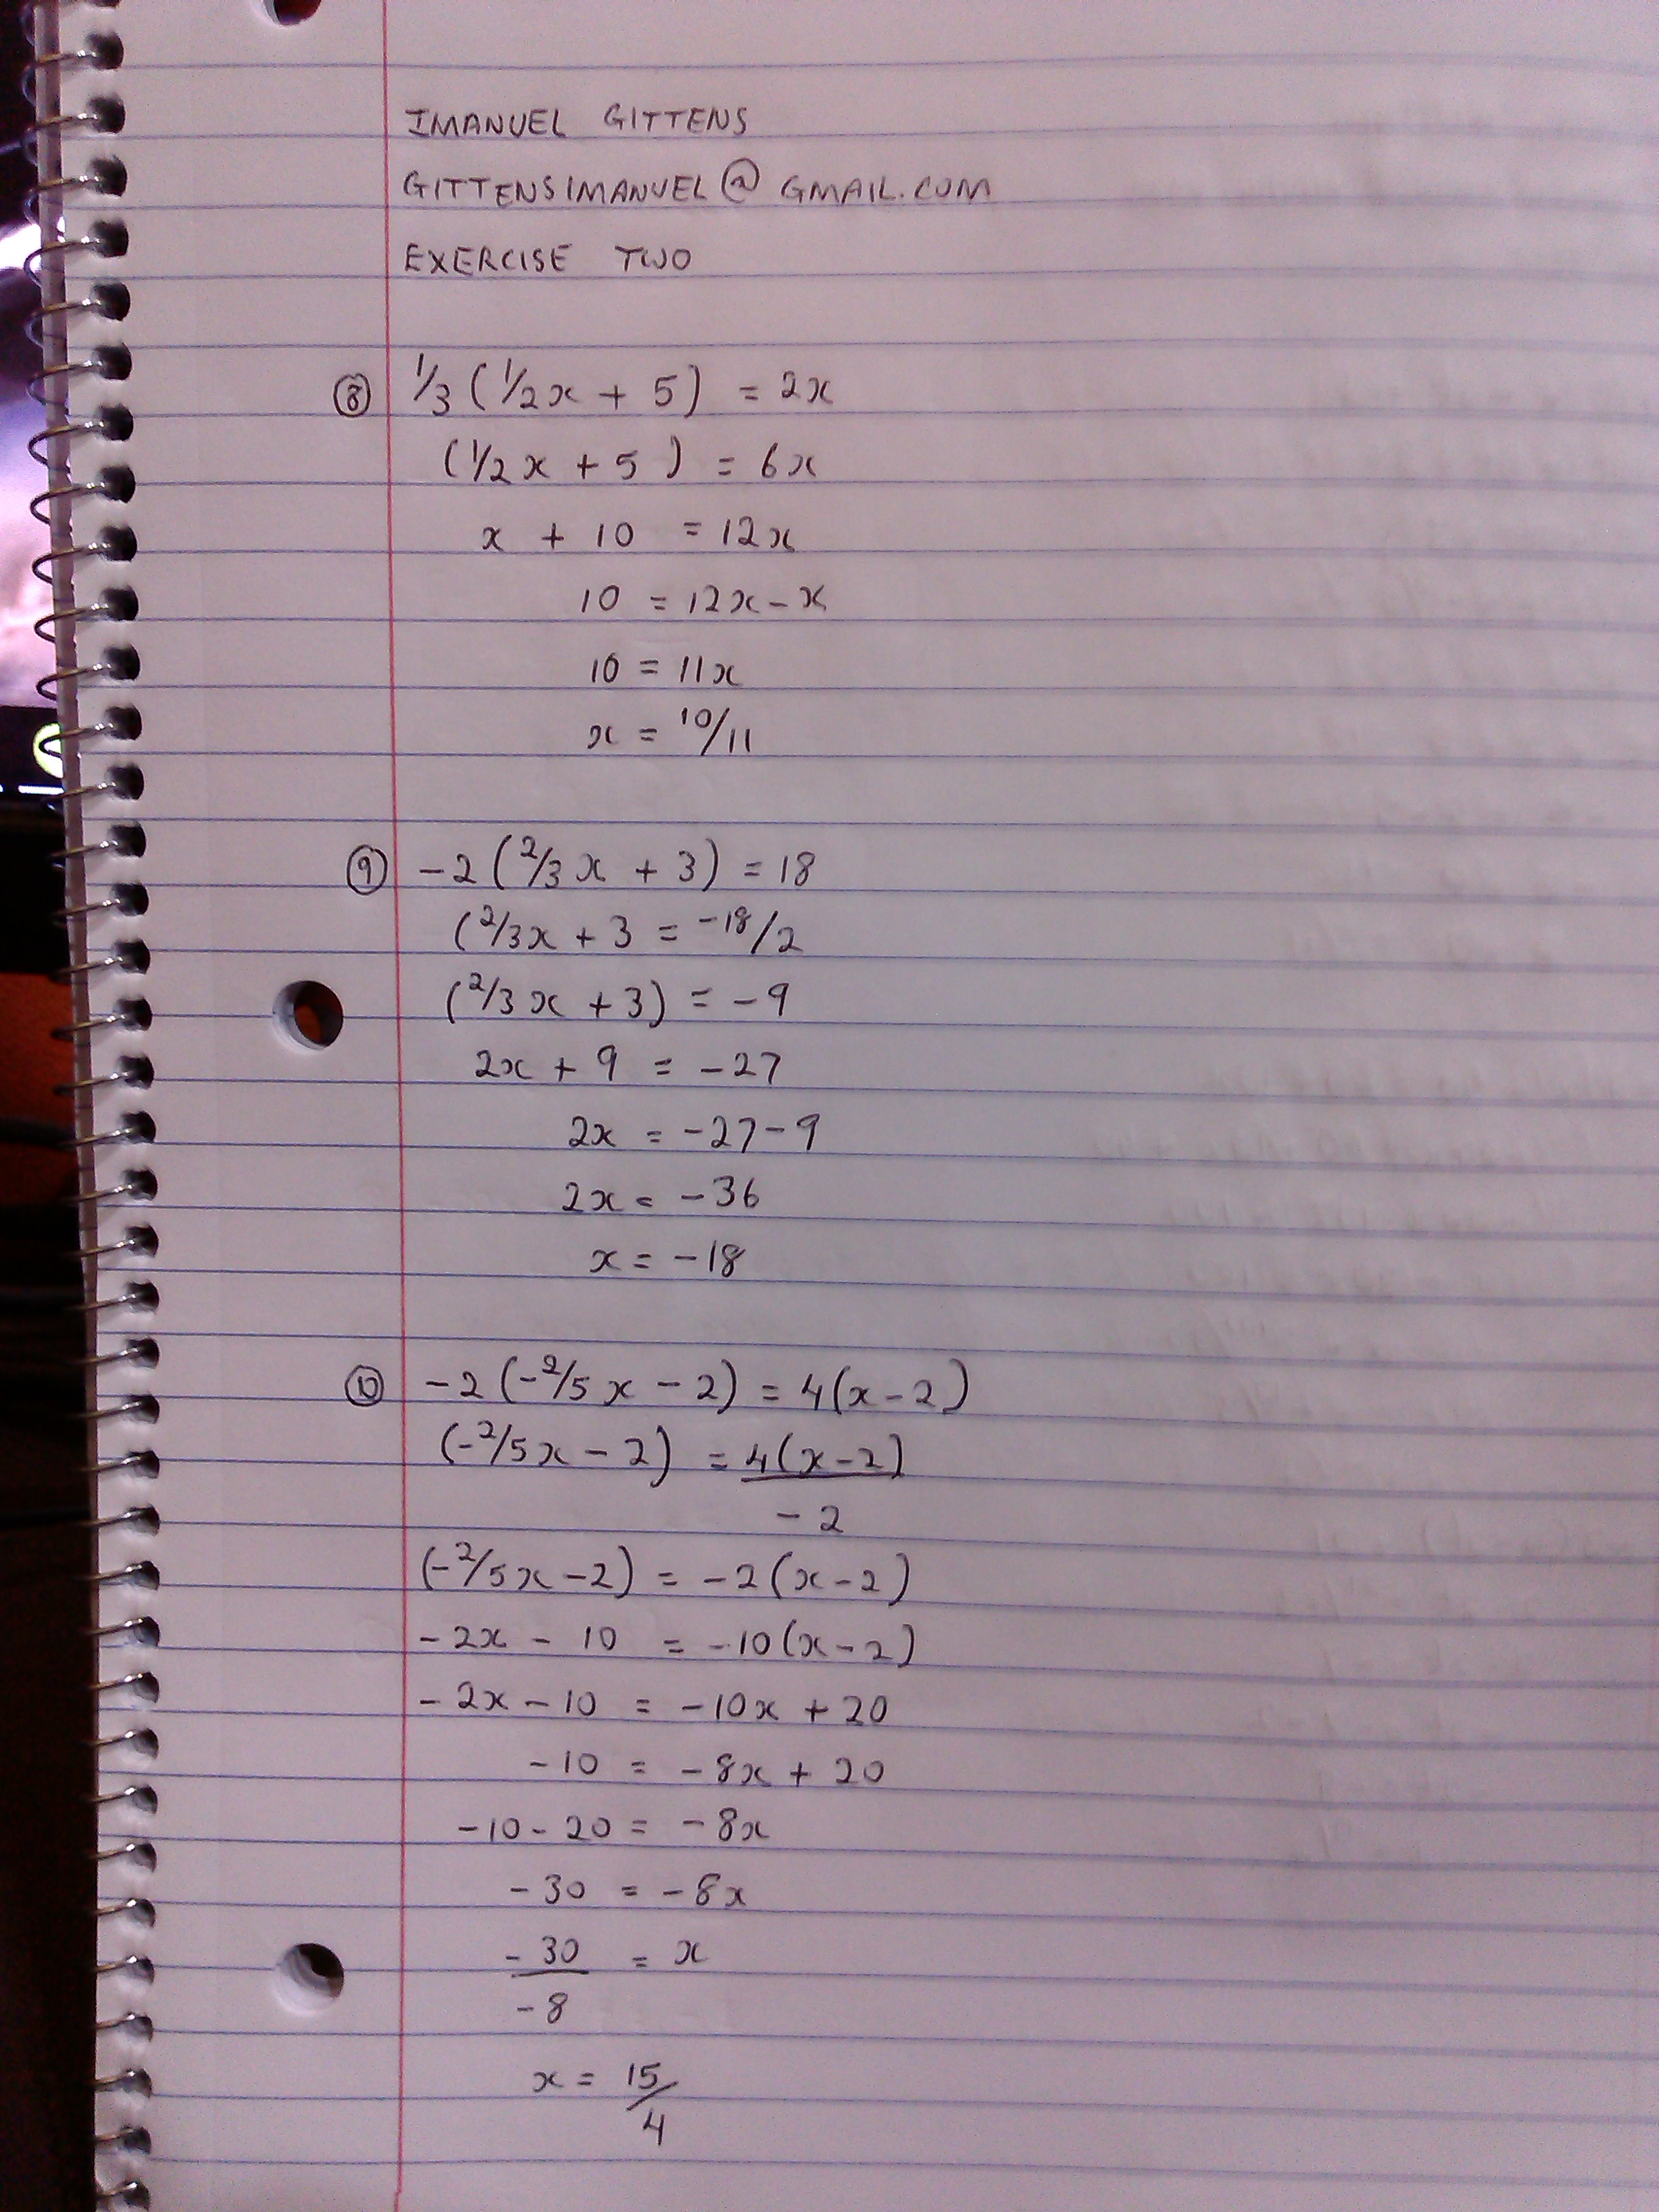 IMANUEL GITTENS
GITTENSIMANUEL@GMAIL.COM
EXERCISE TWO
⑧ 1/3 (1/2x + 5) = 2x
(1/2x + 5) = 6x
x + 10 = 12x
10 = 12x - x
10 = 11x
x = 10/11
⑨ -2 (2/3x + 3) = 18
(2/3x + 3 = -18/2
(2/3x + 3) = -9
2x + 9 = -27
2x = -27-9
2x = -36
x = -18
⑩ -2 (-2/5x - 2) = 4(x-2)
(-2/5x - 2) = 4(x-2)
-2
(-2/5x - 2) = -2(x-2)
-2x - 10 = -10(x-2)
-2x - 10 = -10x + 20
-10 = -8x + 20
-10 - 20 = -8x
-30 = -8x
-30 = x
-8
x = 15/4